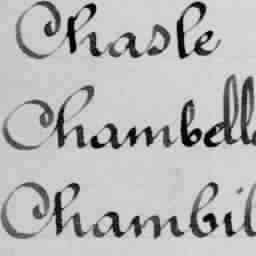 Chasle
Chambell
Chambil